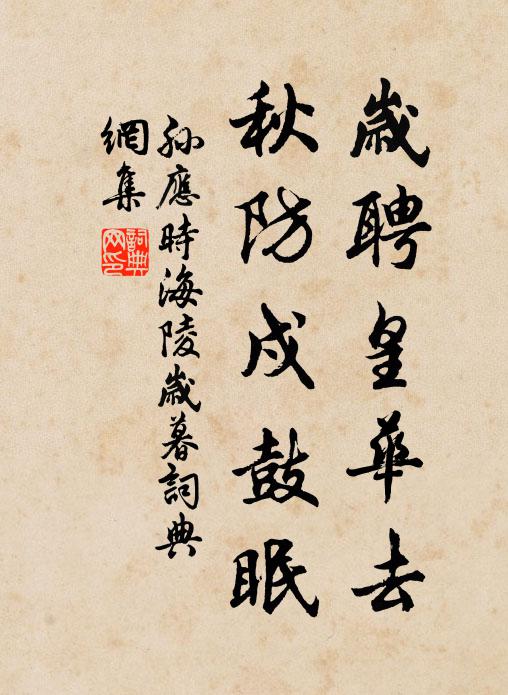 歲聘皇華去
秋防戍鼓眠
孫應時海陵歲暮詞典
網集
詞典
网印